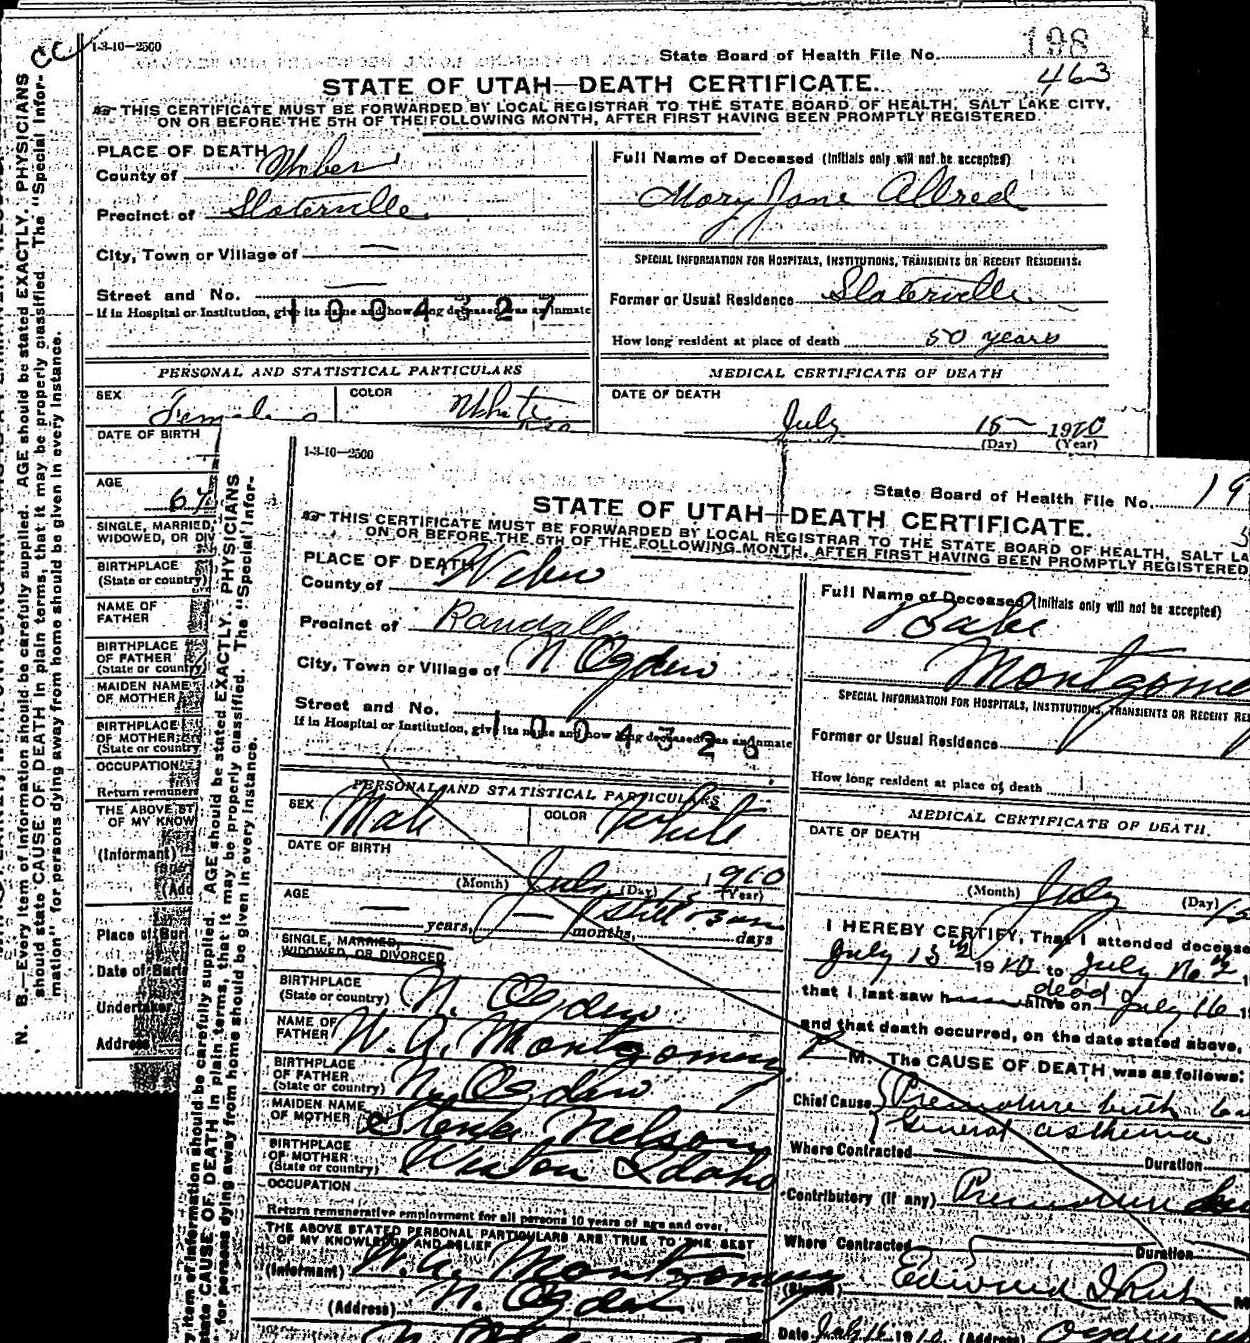 CC
1-3-10—2500
State Board of Health File No. 198
463
STATE OF UTAH—DEATH CERTIFICATE.
THIS CERTIFICATE MUST BE FORWARDED BY LOCAL REGISTRAR TO THE STATE BOARD OF HEALTH, SALT LAKE CITY,
ON OR BEFORE THE 5TH OF THE FOLLOWING MONTH, AFTER FIRST HAVING BEEN PROMPTLY REGISTERED.
PLACE OF DEATH
County of Weber
Precinct of Slaterville
City, Town or Village of —
Street and No. —
1004327
If in Hospital or Institution, give its name and how long deceased was an inmate
Full Name of Deceased (Initials only will not be accepted)
Mary Jane Allred
SPECIAL INFORMATION FOR HOSPITALS, INSTITUTIONS, TRANSIENTS OR RECENT RESIDENTS.
Former or Usual Residence Slaterville
How long resident at place of death 50 years
PERSONAL AND STATISTICAL PARTICULARS
SEX Female COLOR White
DATE OF BIRTH
AGE 67
SINGLE, MARRIED,
WIDOWED, OR DIV
BIRTHPLACE
(State or country)
NAME OF
FATHER
BIRTHPLACE
OF FATHER
(State or country
MAIDEN NAME
OF MOTHER
BIRTHPLACE
OF MOTHER
(State or country
OCCUPATION
Return remuner
THE ABOVE ST
OF MY KNOW
(Informant)
(Add
Place of Buri
Date of Buria
Undertaker
Address
MEDICAL CERTIFICATE OF DEATH
DATE OF DEATH
July 15 1910
(Day) (Year)
N. B.—Every item of information should be carefully supplied. AGE should be stated EXACTLY. PHYSICIANS
should state CAUSE OF DEATH in plain terms, that it may be properly classified. The "Special Infor-
mation" for persons dying away from home should be given in every instance.
1-3-10—2500
State Board of Health File No. 19
STATE OF UTAH—DEATH CERTIFICATE.
THIS CERTIFICATE MUST BE FORWARDED BY LOCAL REGISTRAR TO THE STATE BOARD OF HEALTH, SALT LA
ON OR BEFORE THE 5TH OF THE FOLLOWING MONTH, AFTER FIRST HAVING BEEN PROMPTLY REGISTERED
PLACE OF DEATH
County of Weber
Precinct of Randall
City, Town or Village of N Ogden
Street and No.
If in Hospital or Institution, give its name and how long deceased was an inmate
Full Name of Deceased (Initials only will not be accepted)
Babe
Montgome
SPECIAL INFORMATION FOR HOSPITALS, INSTITUTIONS, TRANSIENTS OR RECENT RE
Former or Usual Residence
How long resident at place of death
PERSONAL AND STATISTICAL PARTICULARS
SEX Male COLOR White
DATE OF BIRTH
July 15 1910
(Month) (Day) (Year)
AGE
— — Still Born
years, months, days
SINGLE, MARRIED,
WIDOWED, OR DIVORCED
BIRTHPLACE
(State or country) N. Ogden
NAME OF
FATHER W. G. Montgomery
BIRTHPLACE
OF FATHER
(State or country) N. Ogden
MAIDEN NAME
OF MOTHER Nelson
BIRTHPLACE
OF MOTHER
(State or country) Weston Idaho
OCCUPATION
Return remunerative employment for all persons 10 years of age and over.
THE ABOVE STATED PERSONAL PARTICULARS ARE TRUE TO THE BEST
OF MY KNOWLEDGE AND BELIEF
(Informant) W. G. Montgomery
(Address) N. Ogden
MEDICAL CERTIFICATE OF DEATH.
DATE OF DEATH
(Month) July (Day) 15
I HEREBY CERTIFY, That I attended decease
July 15th 1910 to July
that I last saw h alive on dead July 16 1
and that death occurred, on the date stated above,
M. The CAUSE OF DEATH was as follows:
Chief Cause Premature birth
General asthenia
Where Contracted Duration
Contributory (if any) Premature
Where Contracted Duration
(Signed) Edward I Rich M
Date July 16 1910 (Address) Ogd
item of information should be carefully supplied. AGE should be stated EXACTLY. PHYSICIANS
state CAUSE OF DEATH in plain terms, that it may be properly classified. The "Special Infor-
for persons dying away from home should be given in every instance.